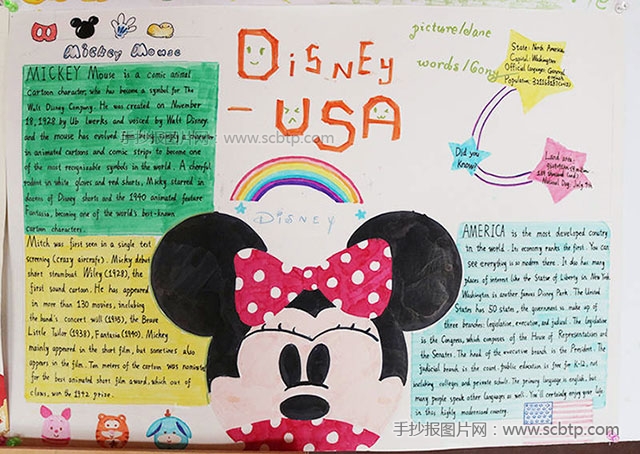 Mickey Mouse
DISNEY
- USA
picture/dane
words/Cony
MICKEY Mouse is a comic animal
cartoon character, who has become a symbol for The
Walt Disney Company. He was created on November
18, 1928 by Ub Iwerks and voiced by Walt Disney.
and the mouse has evolved from being
in animated cartoons and comic strips to become one
of the most recognizable symbols in the world. A cheerful
rodent in white gloves and red shorts, Mickey starred in
dozens of Disney shorts and the 1940 animated feature
Fantasia, becoming one of the world's best-known
cartoon characters.
手抄报图片网:www.scbtp.com
State: North America
Capital: Washington
Official language: General
Population:
Did you
Know?
Land area:
National Day: July 4th
DISNEY
Mitch was first seen in a single test
screening (crazy aircraft). Mickey debut
short steamboat Wiley (1928), the
first sound cartoon. He has appeared
in more than 130 movies, including
the band's concert will (1935), the Brave
Little Tailor (1938), Fantasia (1940). Mickey
mainly appeared in the short film, but sometimes also
appears in the film. Ten meters of the cartoon was nominated
for the best animated short film award, which out of
claws, won the 1942 prize.
AMERICA is the most developed country
in the world. In economy ranks the first. You can
see everything is so modern there. It also has many
places of interest like the Statue of Liberty in New York.
Washington is another famous Disney Park. The United
States has 50 states, the government is make up of
three branches: legislation, execution, and judicial. The legislative
is the Congress, which composes of the House of Representatives and
the Senates. The head of the executive branch is the President. The
judicial branch is the court. public education is free for K-12, not
including colleges and private schools. The primary language is english, but
many people speak other languages as well. You'll certainly enjoy your life
in this highly modernized country.
手抄报图片网:www.scbtp.com